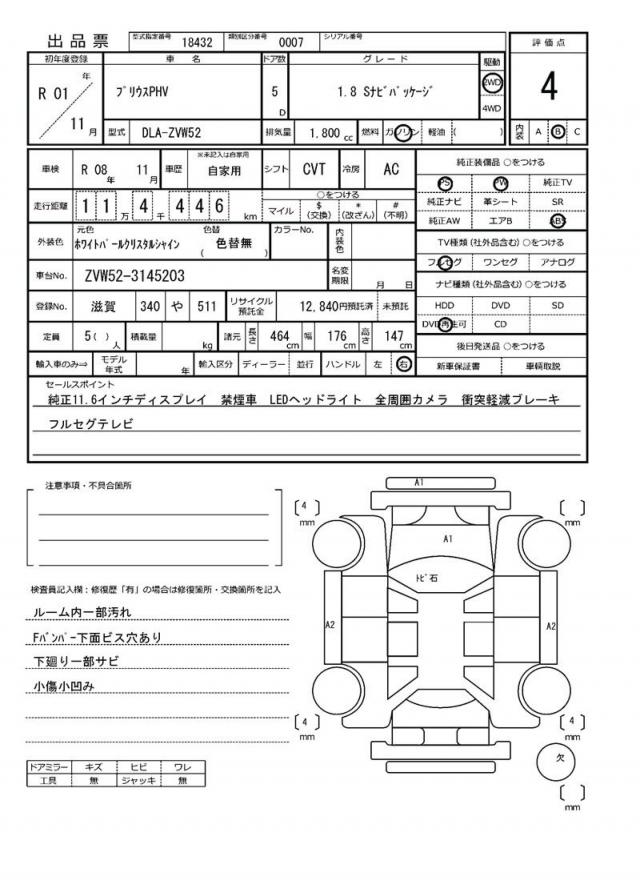 出品票 型式指定番号 18432 類別区分番号 0007 シリアル番号
初年度登録 車名 ドア数 グレード 駆動 評価点
R 01 年 11 月 プリウスPHV 5 D 1.8 Sナビパッケージ 2WD 4WD 4
型式 DLA-ZVW52 排気量 1,800 cc 燃料 ガソリン 軽油 ( ) 内装 A B C
車検 R 08 年 11 月 車歴 ※未記入は自家用 自家用 シフト CVT 冷房 AC
純正装備品 ○をつける
PS PW 純正TV
純正ナビ 革シート SR
純正AW エアB ABS
走行距離 1 1 万 4 千 4 4 6 km ○をつける マイル $ (交換) * (改ざん) # (不明)
外装色 元色 ホワイトパールクリスタルシャイン 色替 ( 色替無 ) カラーNo. 内装色
TV種類 (社外品含む) ○をつける
フルセグ ワンセグ アナログ
車台No. ZVW52-3145203 名変期限 月 日
ナビ種類 (社外品含む) ○をつける
HDD DVD SD
DVD再生可 CD
登録No. 滋賀 340 や 511 リサイクル預託金 12,840円預託済 未預託
定員 5( ) 人 積載量 kg 諸元 長さ 464 cm 幅 176 cm 高さ 147 cm
後日発送品 ○をつける
新車保証書 車輌取説
輸入車のみ⇒ モデル年式 年 輸入区分 ディーラー 並行 ハンドル 左 右
セールスポイント
純正11.6インチディスプレイ 禁煙車 LEDヘッドライト 全周囲カメラ 衝突軽減ブレーキ
フルセグテレビ
注意事項・不具合箇所
検査員記入欄：修復歴「有」の場合は修復箇所・交換箇所を記入
ルーム内一部汚れ
Fバンパー下面ビス穴あり
下廻り一部サビ
小傷小凹み
ドアミラー キズ ヒビ ワレ
工具 無 ジャッキ 無
A1
[ 4 ] mm
[ ] mm
A1
トビ石
A2
A2
[ 4 ] mm
[ 4 ] mm
欠
[ ] mm